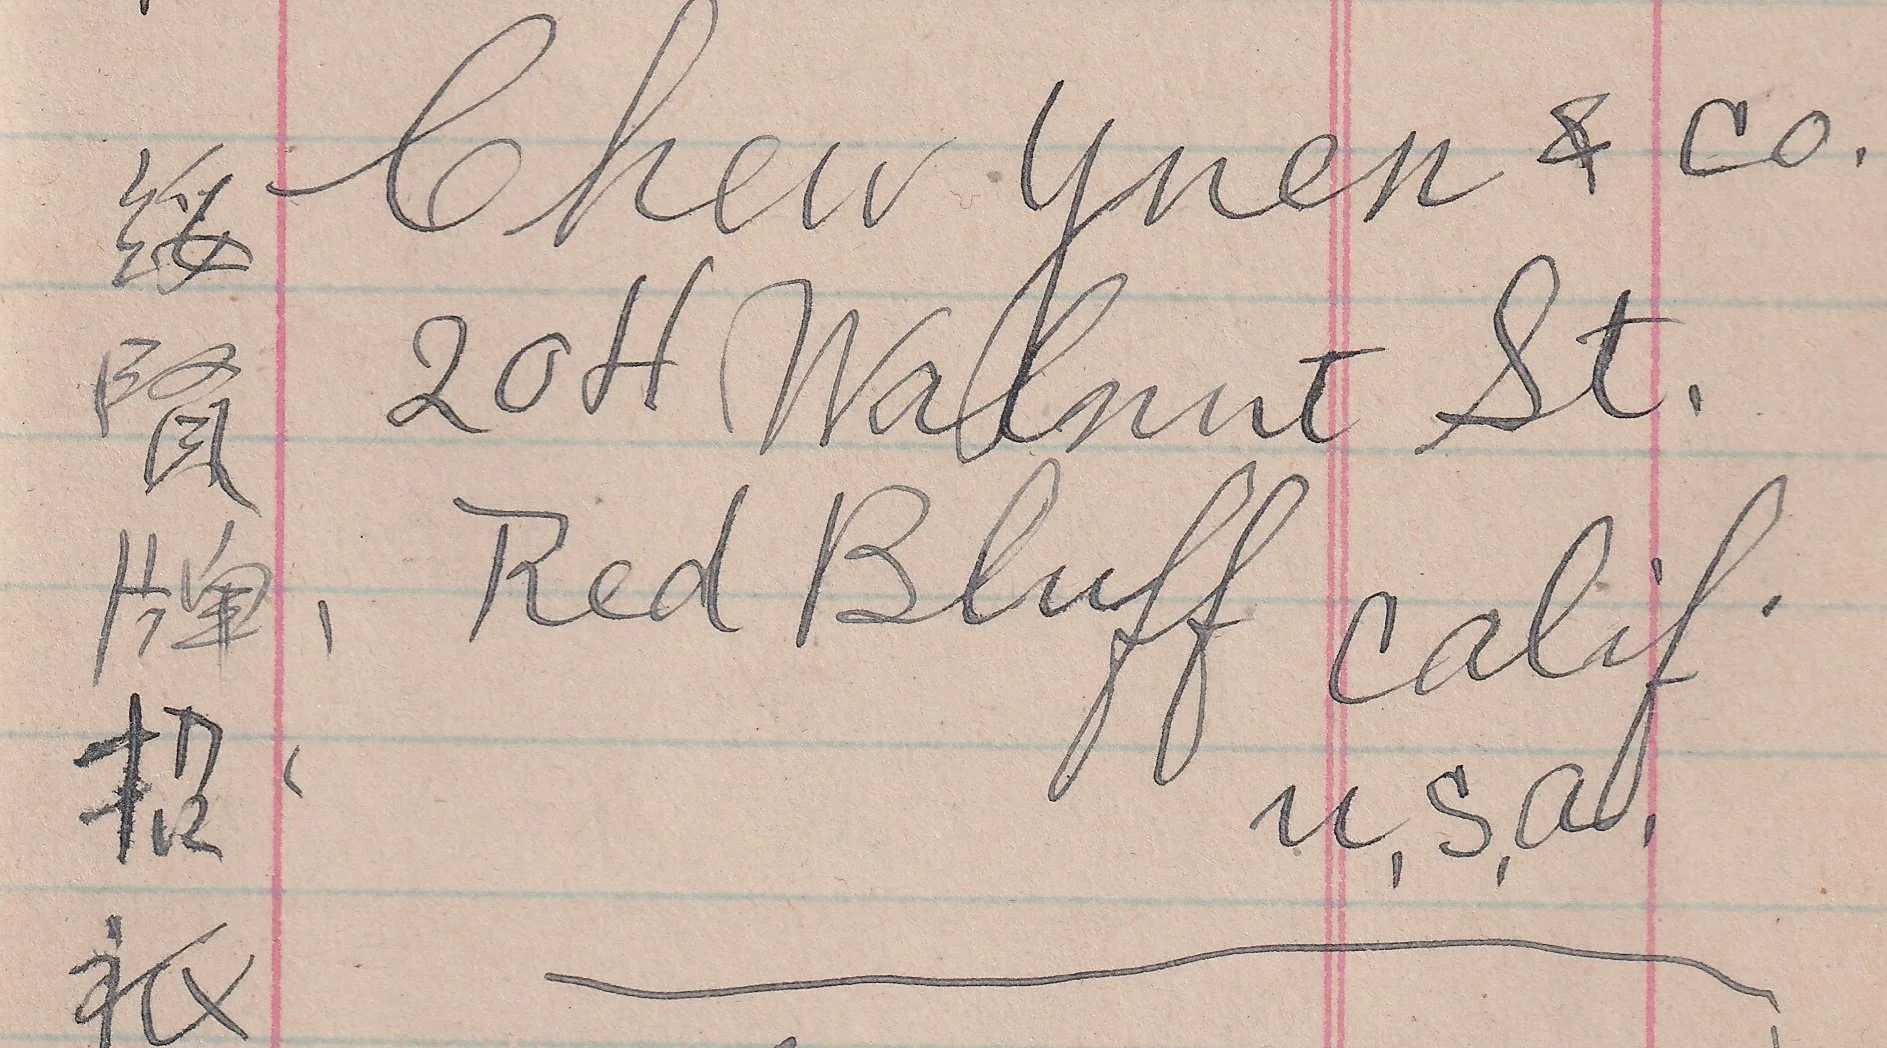 Chew Yuen & Co.
204 Walnut St.
Red Bluff Calif.
U,S,A.
賢
牌
招